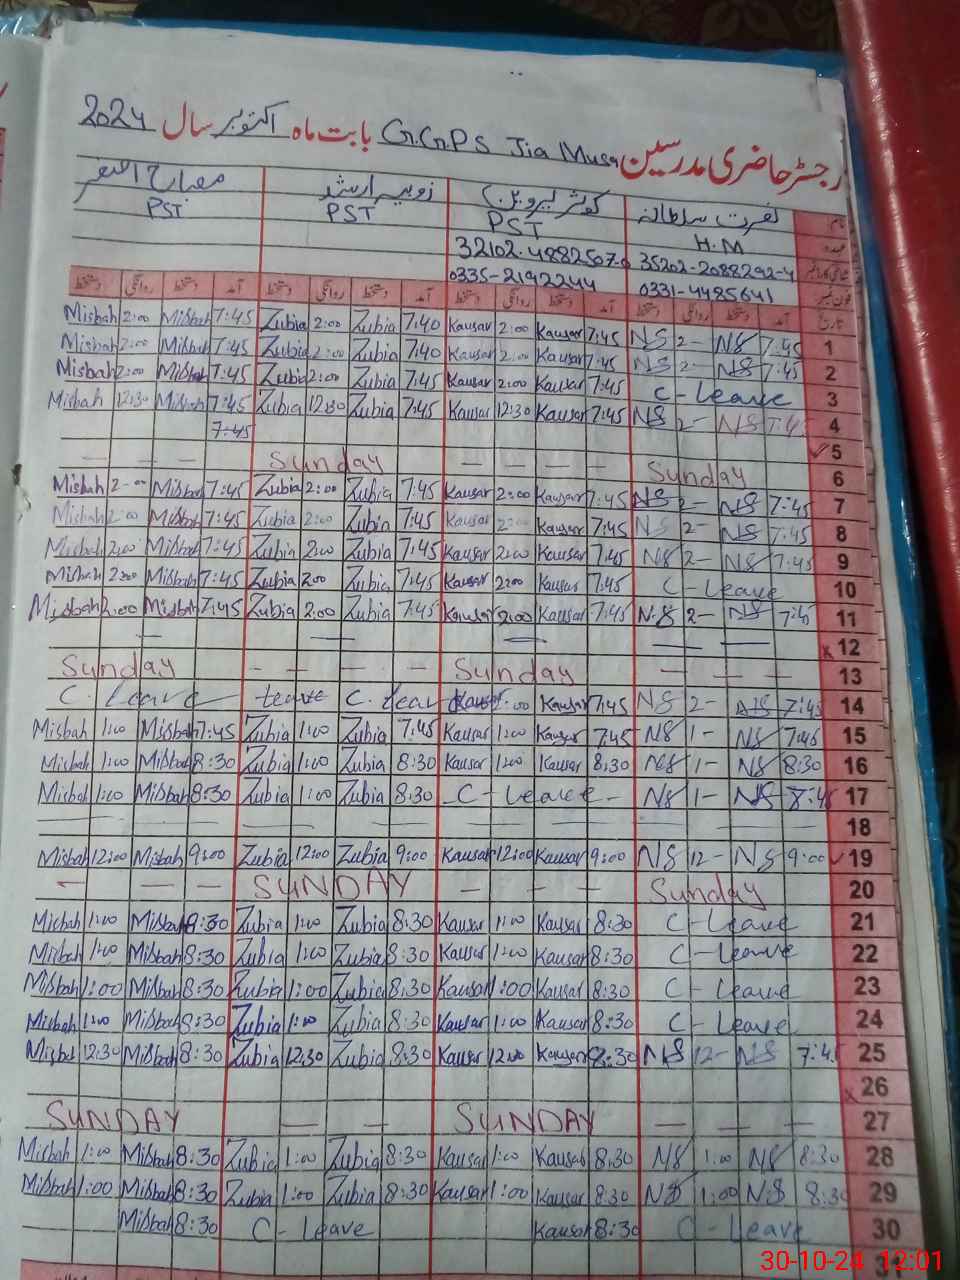 رجسٹر حاضری مدرسین G.G.P.S Jia Musa بابت ماہ اکتوبر سال 2024
نام نصرت سلطانہ کوثر پروین زوبیہ ارشد مصباح
عہدہ H.M PST PST PST
35202-2088292-4 32102-4882507-0
فون نمبر 0331-4485641 0335-2192244
تاریخ آمد دستخط روانگی دستخط آمد دستخط روانگی دستخط آمد دستخط روانگی دستخط آمد دستخط روانگی دستخط
Misbah 2:00 Misbah 7:45 Zubia 2:00 Zubia 7:40 Kausar 2:00 Kausar 7:45 NS 2- NS 7:45 1
Misbah 2:00 Misbah 7:45 Zubia 2:00 Zubia 7:40 Kausar 2:00 Kausar 7:45 NS 2- NS 7:45 2
Misbah 2:00 Misbah 7:45 Zubia 2:00 Zubia 7:45 Kausar 2:00 Kausar 7:45 C-Leave 3
Misbah 12:30 Misbah 7:45 Zubia 12:30 Zubia 7:45 Kausar 12:30 Kausar 7:45 NS 2- NS 7:45 4
7:45 5
— — — Sunday — — — — Sunday 6
Misbah 2:00 Misbah 7:45 Zubia 2:00 Zubia 7:45 Kausar 2:00 Kausar 7:45 NS 2- NS 7:45 7
Misbah 2:00 Misbah 7:45 Zubia 2:00 Zubia 7:45 Kausar 2:00 Kausar 7:45 NS 2- NS 7:45 8
Misbah 2:00 Misbah 7:45 Zubia 2:00 Zubia 7:45 Kausar 2:00 Kausar 7:45 NS 2- NS 7:45 9
Misbah 2:00 Misbah 7:45 Zubia 2:00 Zubia 7:45 Kausar 2:00 Kausar 7:45 C-Leave 10
Misbah 2:00 Misbah 7:45 Zubia 2:00 Zubia 7:45 Kausar 2:00 Kausar 7:45 NS 2- NS 7:45 11
— — — — — 12
Sunday — — — — — Sunday — — — 13
C. Leave Leave C. Leav Kausar 2:00 Kausar 7:45 NS 2- NS 7:45 14
Misbah 1:00 Misbah 7:45 Zubia 1:00 Zubia 7:45 Kausar 1:00 Kausar 7:45 NS 1- NS 7:45 15
Misbah 1:00 Misbah 8:30 Zubia 1:00 Zubia 8:30 Kausar 1:00 Kausar 8:30 NS 1- NS 8:30 16
Misbah 1:00 Misbah 8:30 Zubia 1:00 Zubia 8:30 C - Leave - NS 1- NS 8:45 17
18
Misbah 12:00 Misbah 9:00 Zubia 12:00 Zubia 9:00 Kausar 12:00 Kausar 9:00 NS 12- NS 9:00 19
— — — SUNDAY — — — Sunday 20
Misbah 1:00 Misbah 8:30 Zubia 1:00 Zubia 8:30 Kausar 1:00 Kausar 8:30 C-Leave 21
Misbah 1:00 Misbah 8:30 Zubia 1:00 Zubia 8:30 Kausar 1:00 Kausar 8:30 C-Leave 22
Misbah 1:00 Misbah 8:30 Zubia 1:00 Zubia 8:30 Kausar 1:00 Kausar 8:30 C-Leave 23
Misbah 1:00 Misbah 8:30 Zubia 1:00 Zubia 8:30 Kausar 1:00 Kausar 8:30 C-Leave 24
Misbah 12:30 Misbah 8:30 Zubia 12:30 Zubia 8:30 Kausar Kausar 8:30 NS 12- NS 7:45 25
26
SUNDAY — — SUNDAY — — — 27
Misbah 1:00 Misbah 8:30 Zubia 1:00 Zubia 8:30 Kausar 1:00 Kausar 8:30 NS 1:00 NS 8:30 28
Misbah 1:00 Misbah 8:30 Zubia 1:00 Zubia 8:30 Kausar 1:00 Kausar 8:30 NS 1:00 NS 8:30 29
Misbah 8:30 C-Leave Kausar 8:30 C-Leave 30
30-10-24 12:01